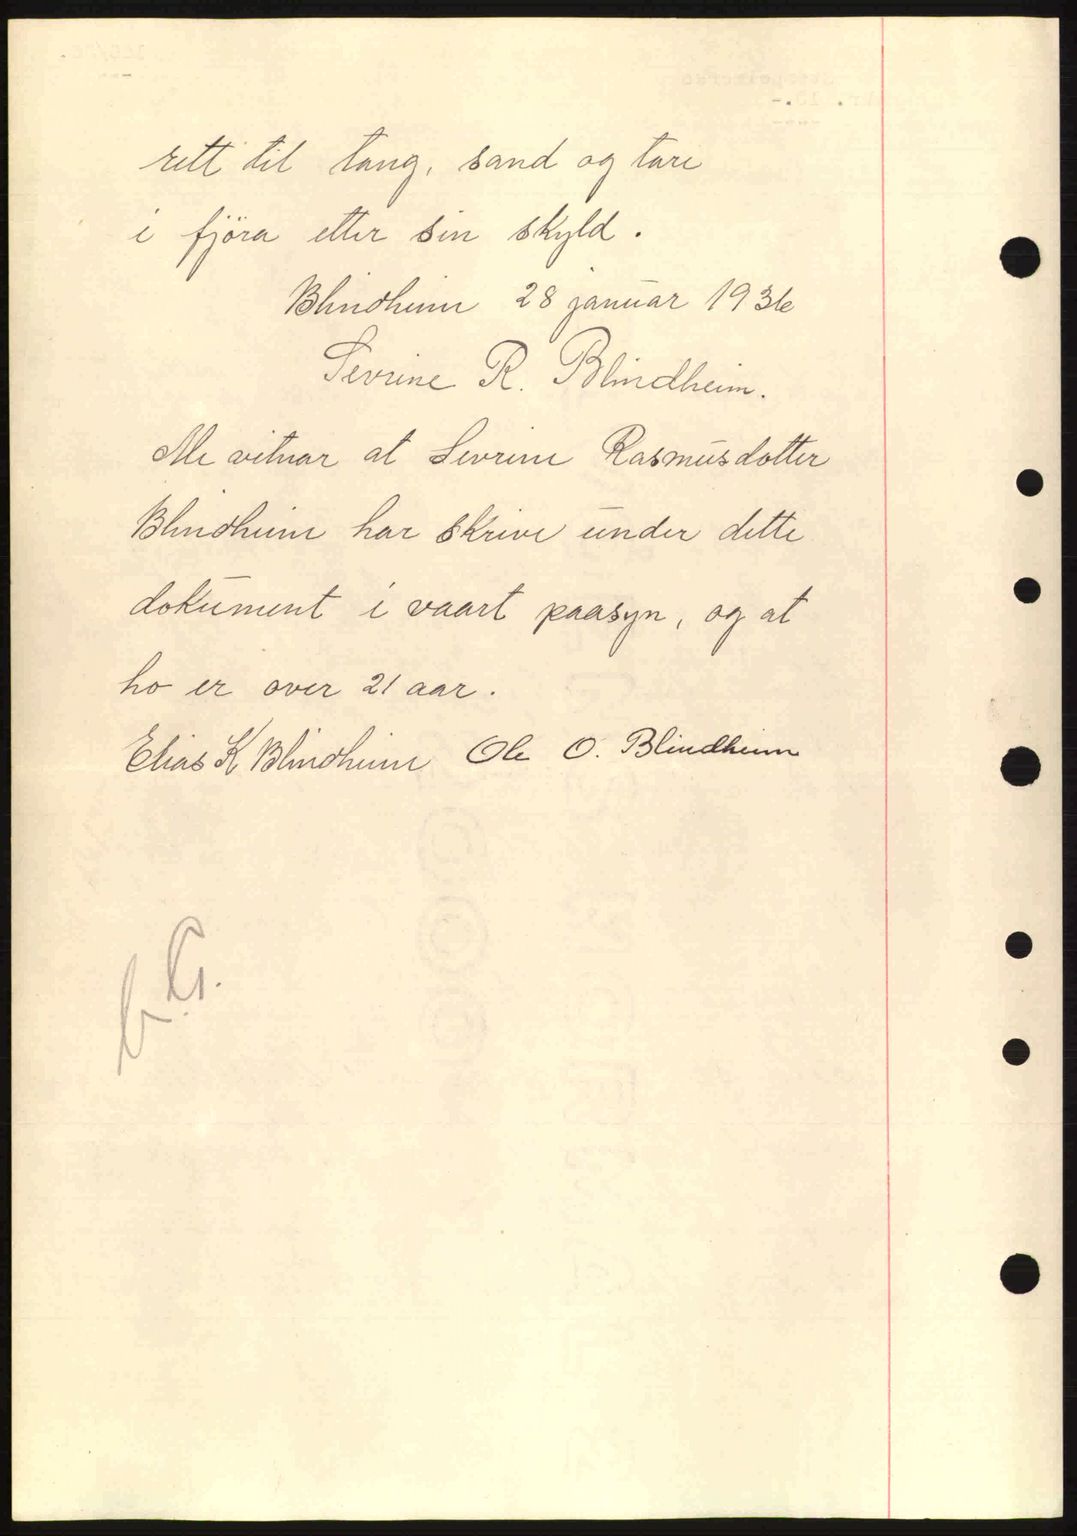 rett til tang, sand og tare
i fjöra etter sin skyld.
Blindheim 28 januar 1936
Sevrine R. Blindheim.
Me vitnar at Sevrine Rasmusdotter
Blindheim har skrive under dette
dokument i vaart paasyn, og at
ho er over 21 aar.
Elias K Blindheim Ole O. Blindheim